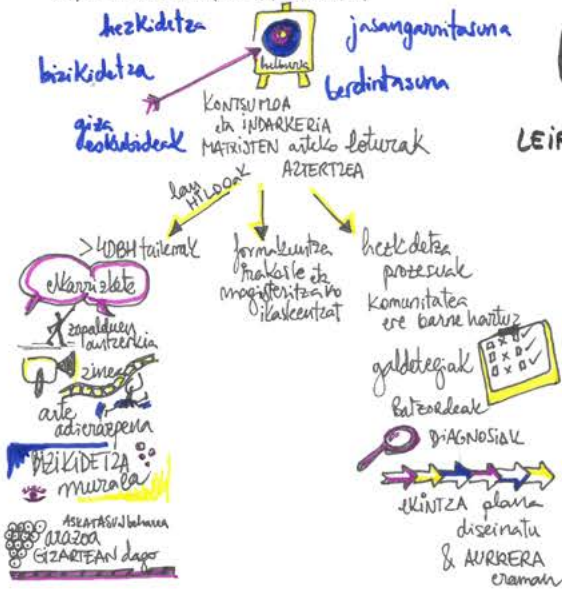 hezkidetza
jasangarritasuna
helburua
bizikidetza
berdintasuna
giza
eskubideak
KONTSUMOA
eta INDARKERIA
MATXISTEN arteko loturak
AZTERTZEA
LEIF
lan
HILDOAK
> 4DBH tailerrak
elkarrizkete
zapalduen
antzerkia
zinea
arte
adierazpena
BIZIKIDETZA
murala
ASKATASUN beharra
arazoa
GIZARTEAN dago
formakuntza
irakasle eta
magisteritzako
ikasleentzat
hezkidetza
prozesuak
komunitatea
ere barne hartuz
galdetegiak
Batzordeak
DIAGNOSIAK
EKINTZA plana
diseinatu
& AURRERA
eraman